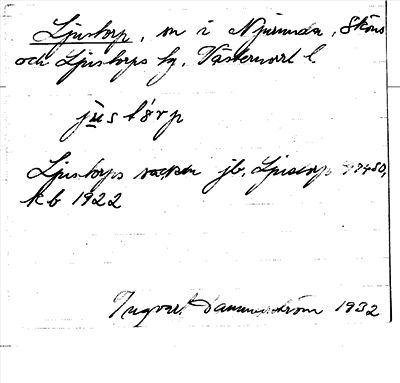 Ljustorp, sn i Njurunda, Sköns
och Ljustorps tg, Västernorrl l
jústórp
Ljustorps socken jb, Ljustorp
kb 1922
Ingvar Dannerström 1932